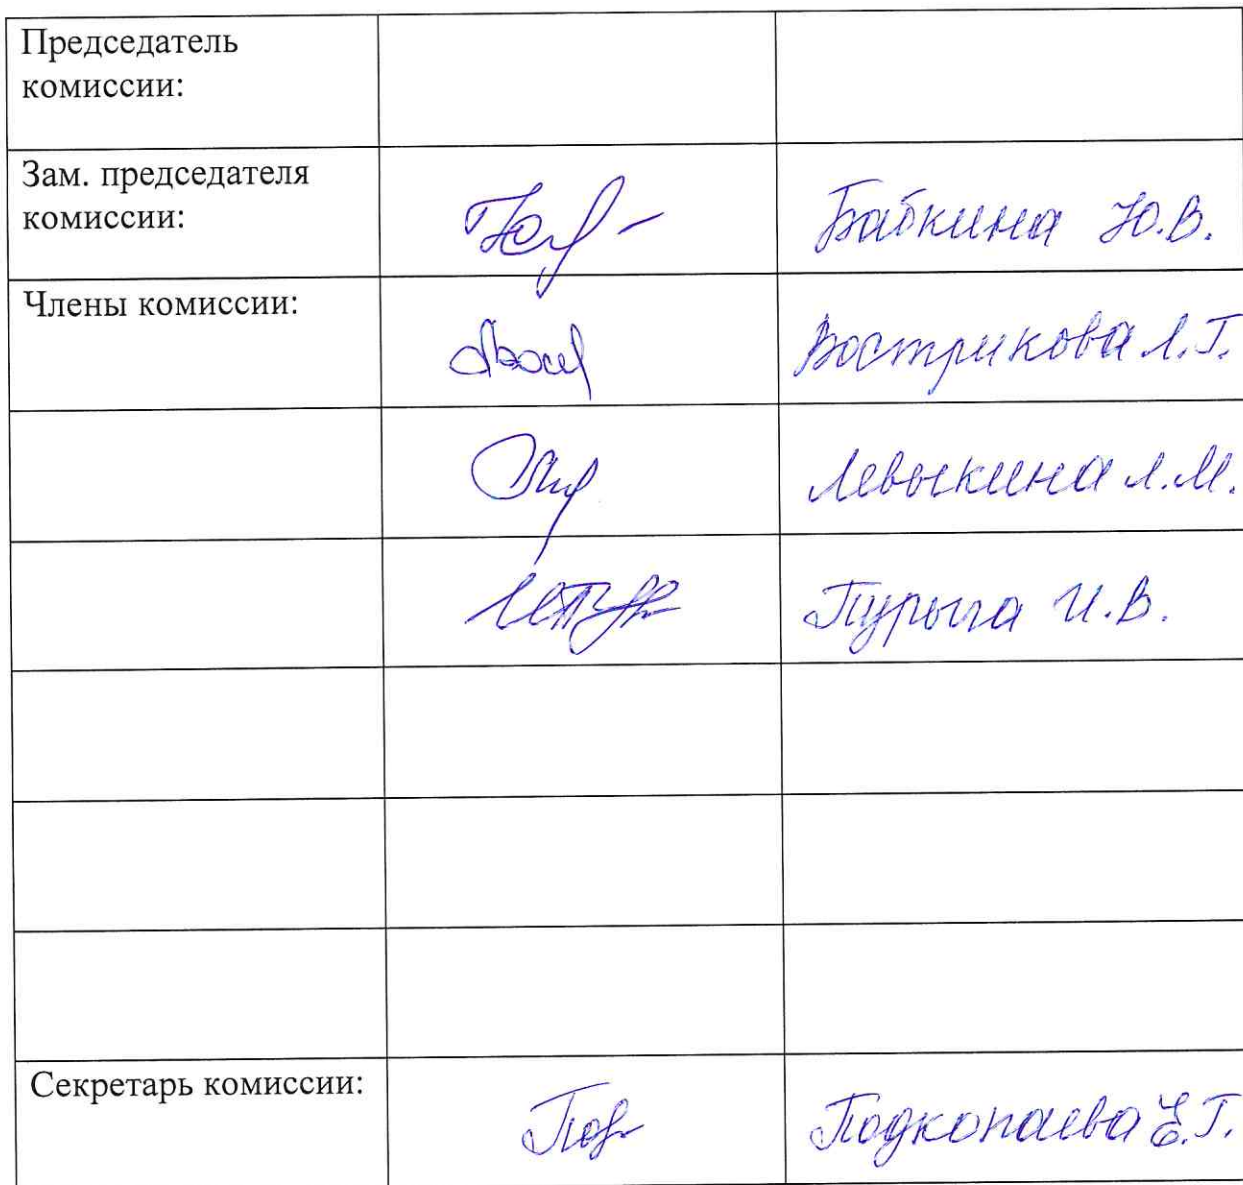 Председатель
комиссии:
Зам. председателя
комиссии:
Бабкина Ю.В.
Члены комиссии:
Вострикова Л.Г.
Левыкина Л.М.
Пурыга И.В.
Секретарь комиссии:
Подкопаева Е.Г.